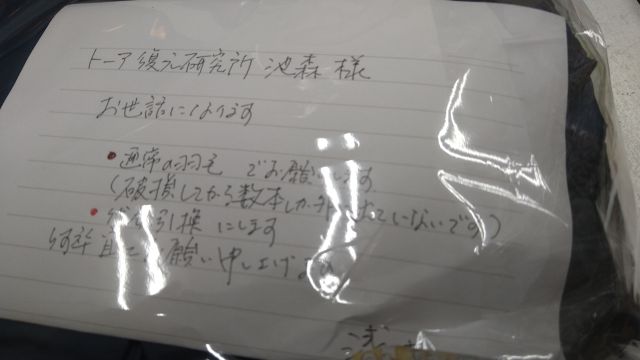 トーア復元研究所 池森様
お世話になります
・通常の羽毛 でお願いします
(破損してから数本しか外へ出ていないです)
・ 引換にします
何卒 お願い申し上げ